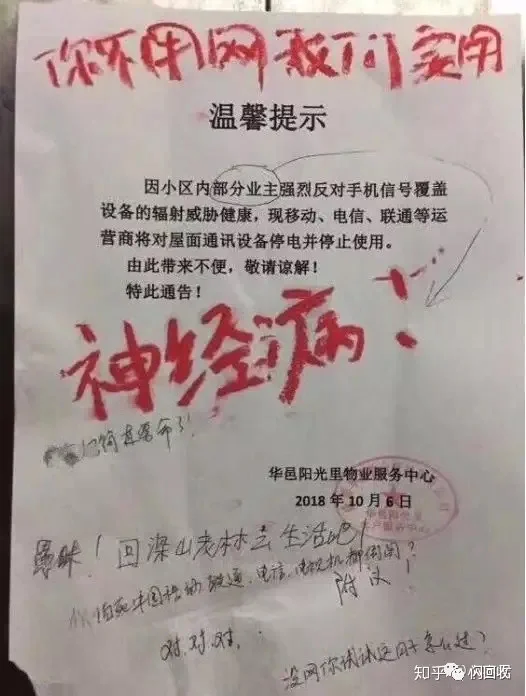 你不用网 我们家用
温馨提示
因小区内部分业主强烈反对手机信号覆盖
设备的辐射威胁健康，现移动、电信、联通等运
营商将对屋面通讯设备停电并停止使用。
由此带来不便，敬请谅解！
特此通告！
神经病！
华邑阳光里物业服务中心
2018年10月6日
愚昧！回深山老林去生活吧！
中国移动、联通、电信、电视机都倒闭？
附议！
对.对.对.
没网你试试这日子怎么过？
知乎 @闪回收